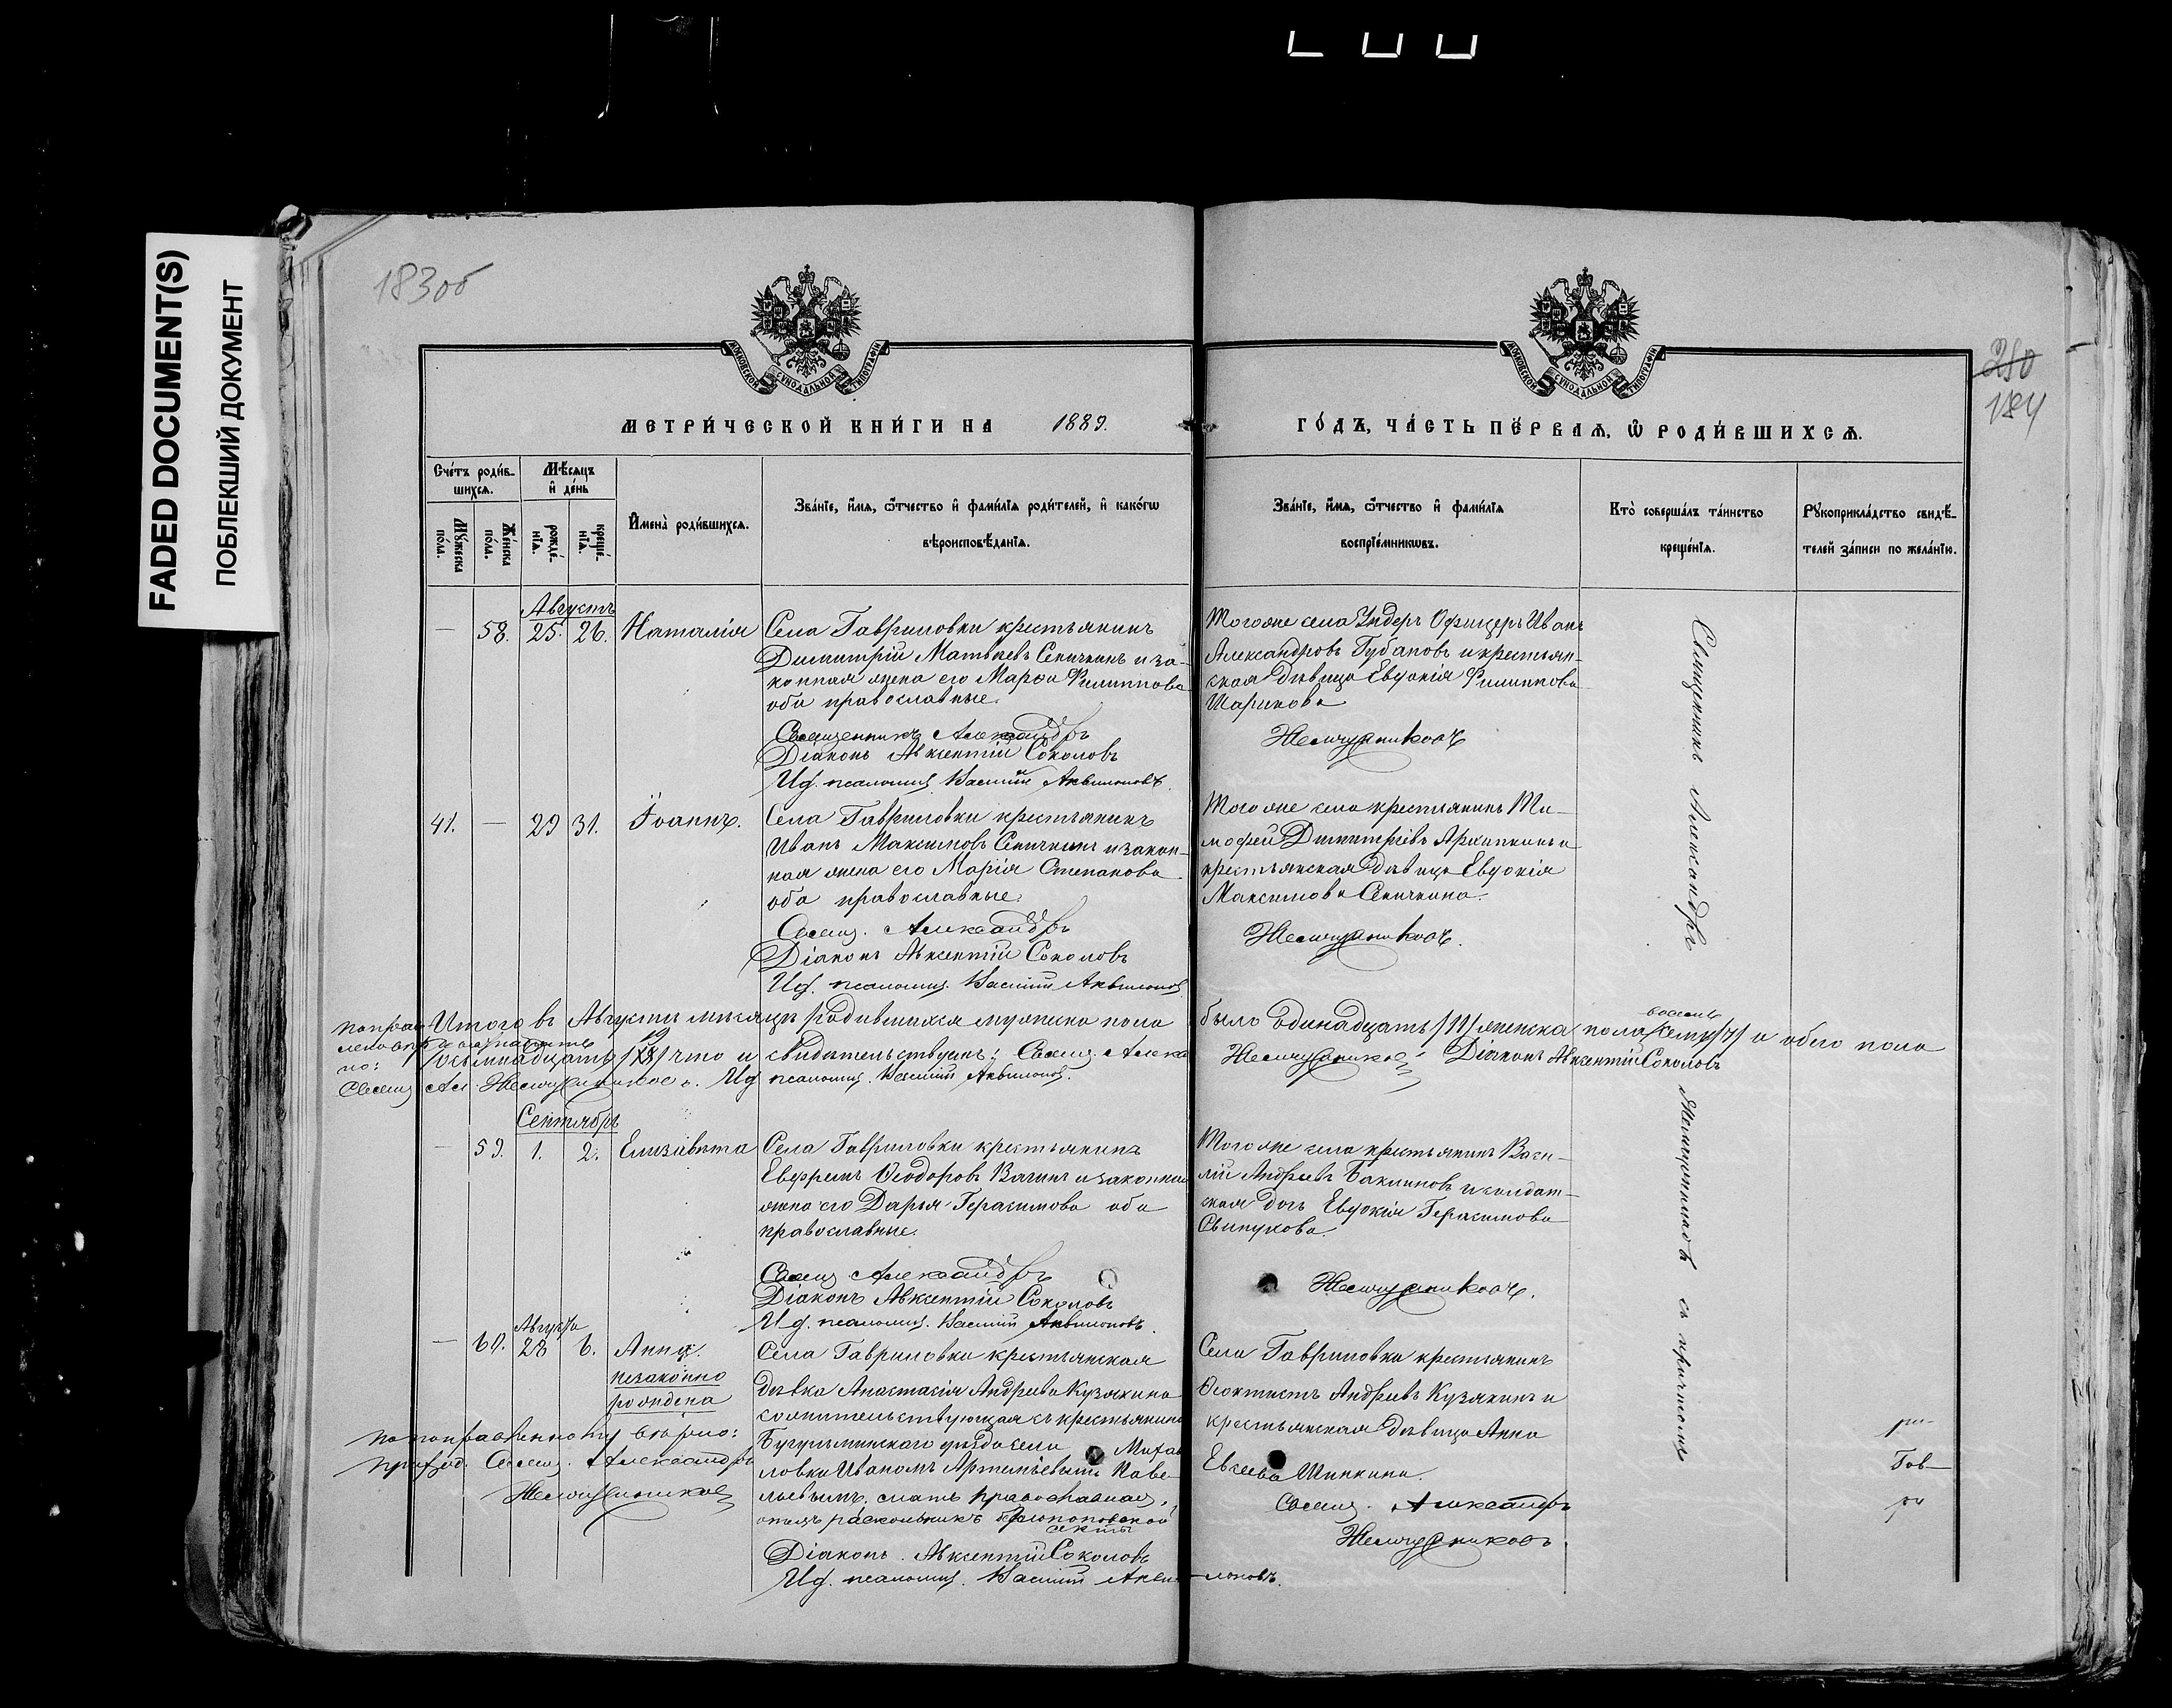 FADED DOCUMENT(S)
ПОБЛЕКШИЙ ДОКУМЕНТ
183об
250
184
МОСКОВСКОЙ СУНОДАЛЬНОЙ ТИПОГРАФІИ
МОСКОВСКОЙ СУНОДАЛЬНОЙ ТИПОГРАФІИ
МЕТРИ́ЧЕСКОЙ КНИ́ГИ НА 1889.
ГО́ДЪ, ЧА́СТЬ ПЕ́РВАѦ, Ѽ РОДИ́ВШИХСѦ.
Сче́тъ роди́в-
шихсѧ.
Мѣ́сѧцъ
и҆ де́нь
Мꙋ́жеска
по́ла.
Же́нска
по́ла.
рожде́-
нїѧ.
креще́-
нїѧ.
И҆мена̀ роди́вшихсѧ.
Зва́нїе, и҆́мѧ, ѻ҆́тчество и҆ фами́лїѧ роди́телей, и҆ како́гѡ
вѣроисповѣ́данїѧ.
Зва́нїе, и҆́мѧ, ѻ҆́тчество и҆ фами́лїѧ
воспрїе́мникѡвъ.
Кто̀ соверша́лъ та́инство
креще́нїѧ.
Рꙋкоприкла́дство свидѣ́-
телей за́писи по жела́нїю.
Августъ
— 58. 25. 26. Наталія
Села Гавриловки крестьянинъ
Димитрій Матвѣевъ Сеничкинъ и за-
конная жена его Марѳа Филиппова
оба православные.
Священникъ Александръ
Діаконъ Авксентій Соколовъ
Ид. псаломщ. Василій Аквилоновъ.
Тогоже села Ундеръ Офицеръ Иванъ
Александровъ Губановъ и крестьян-
ская дѣвица Евдокія Филиппова
Шарикова
Жемчужниковъ
41. — 29 31. Іоаннъ.
Села Гавриловки крестьянинъ
Иванъ Максимовъ Сеничкинъ и закон-
ная жена его Марія Степанова
оба православные.
Свящ. Александръ
Діаконъ Авксентій Соколовъ
Ид. псаломщ. Василій Аквилоновъ
Тогоже села крестьянинъ Ти-
мофей Димитріевъ Архипкинъ и
крестьянская дѣвица Евдокія
Максимова Сеничкина.
Жемчужниковъ.
Итого въ Августѣ мѣсяцѣ родившихся мужеска пола было одинадцать /11/ женска пола восемь и обего пола
/18/ что и свидѣтельствуемъ: Свящ. Алекс Жемчужниковъ Діаконъ Авксентій Соколовъ
Свящ Ал Жемчужниковъ. Ид псаломщ. Василій Аквилоновъ.
Сентябрь
— 59. 1. 2. Елизавета
Села Гавриловки крестьянинъ
Евфремъ Ѳеодоровъ Вагинъ и законная
жена его Дарья Герасимова оба
православные.
Свящ Александръ
Діаконъ Авксентій Соколовъ
Ид. псаломщ. Василій Аквилоновъ.
Тогоже села крестьянинъ Васи-
лій Андреевъ Баклановъ и солдат-
ская дочь Евдокія Герасимова
Свинухова.
Жемчужниковъ.
Августа
— 60. 28 6. Анна.
незаконно
рождена
Села Гавриловки крестьянская
дѣвка Анастасія Андреева Кузякина
сожительствующая съ крестьяниномъ
Бугульминскаго уѣзда села Михай
ловки Иваномъ Артемьевымъ
мать православная,
отецъ раскольникъ
секты
Діаконъ. Авксентій Соколовъ
Ид. псаломщ. Василій Аквилоновъ.
Села Гавриловки крестьянинъ
Ѳеоктистъ Андреевъ Кузякинъ и
крестьянская дѣвица Анна
Евсеева Шипкина.
Свящ. Александръ
Жемчужниковъ.
По поправленному вѣрно:
Свящ. Александръ
Жемчужниковъ
Священникъ Александръ Жемчужниковъ съ причтомъ